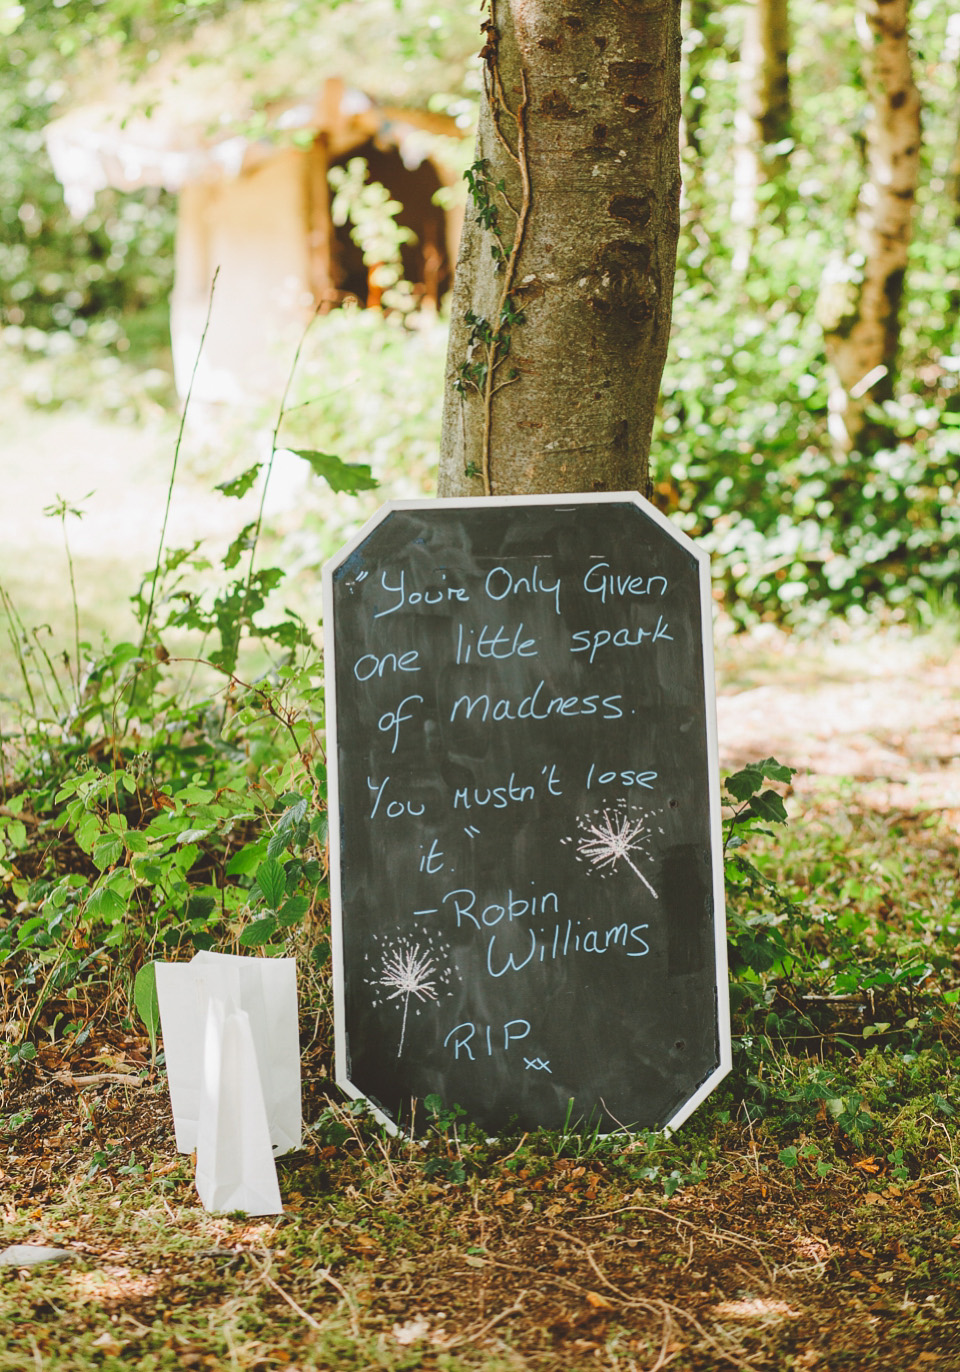 "You're Only Given
one little spark
of Madness.
You Mustn't lose
it."
- Robin
Williams
RIP
xx